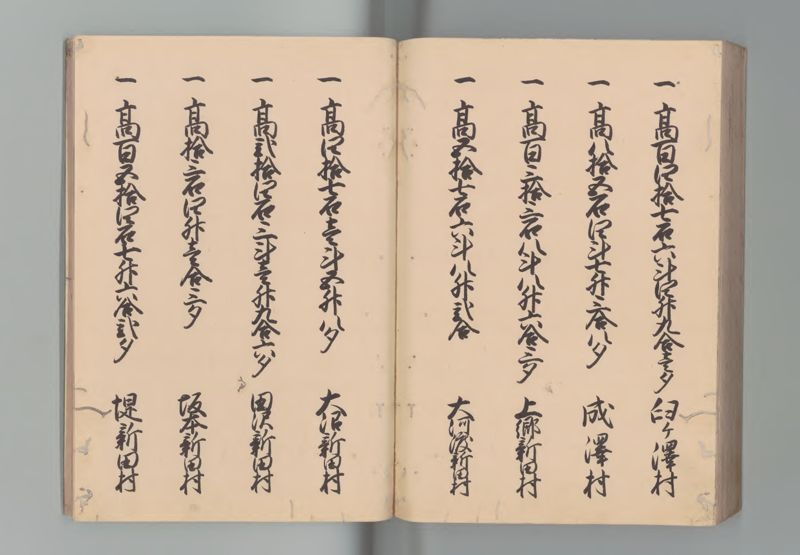 一 高百四拾七石六斗四升九合壱夕 臼ヶ澤村
一 高八拾五石四斗七升三合八夕 成澤村
一 高百三拾三石八斗八升六合三夕 上郷新田村
一 高五拾七石六斗八升弐合 大河渡新田村
一 高四拾七石壱斗五升八夕 大沼新田村
一 高弐拾四石三斗壱升九合六夕 田沢新田村
一 高拾三石四升壱合三夕 坂本新田村
一 高百五拾四石七升六合弐夕 堤新田村